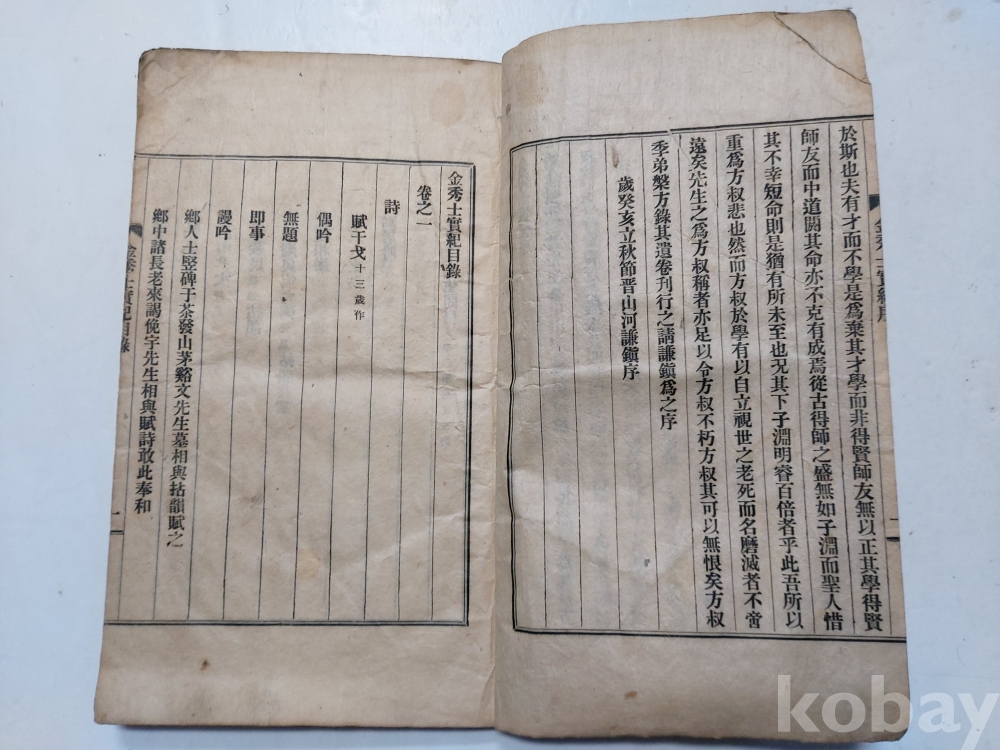 於斯也夫有才而不學是爲棄其才學而非得賢師友無以正其學得賢
師友而中道閼其命亦不克有成焉從古得師之盛無如子淵而聖人惜
其不幸短命則是猶有所未至也况其下子淵明睿百倍者乎此吾所以
重爲方叔悲也然而方叔於學有以自立視世之老死而名磨滅者不啻
遠矣先生之爲方叔稱者亦足以令方叔不朽方叔其可以無恨矣方叔
季弟槃方錄其遺卷刊行之請謙鎭爲之序
歲癸亥立秋節晋山河謙鎭序
二
金秀士實紀目錄
卷之一
詩
賦干戈 十三歲作
偶吟
無題
即事
謾吟
鄉人士竪碑于茶發山茅谿文先生墓相與拈韻賦之
鄉中諸長老來謁俛宇先生相與賦詩敢此奉和
金秀士實紀目錄
一
kobay